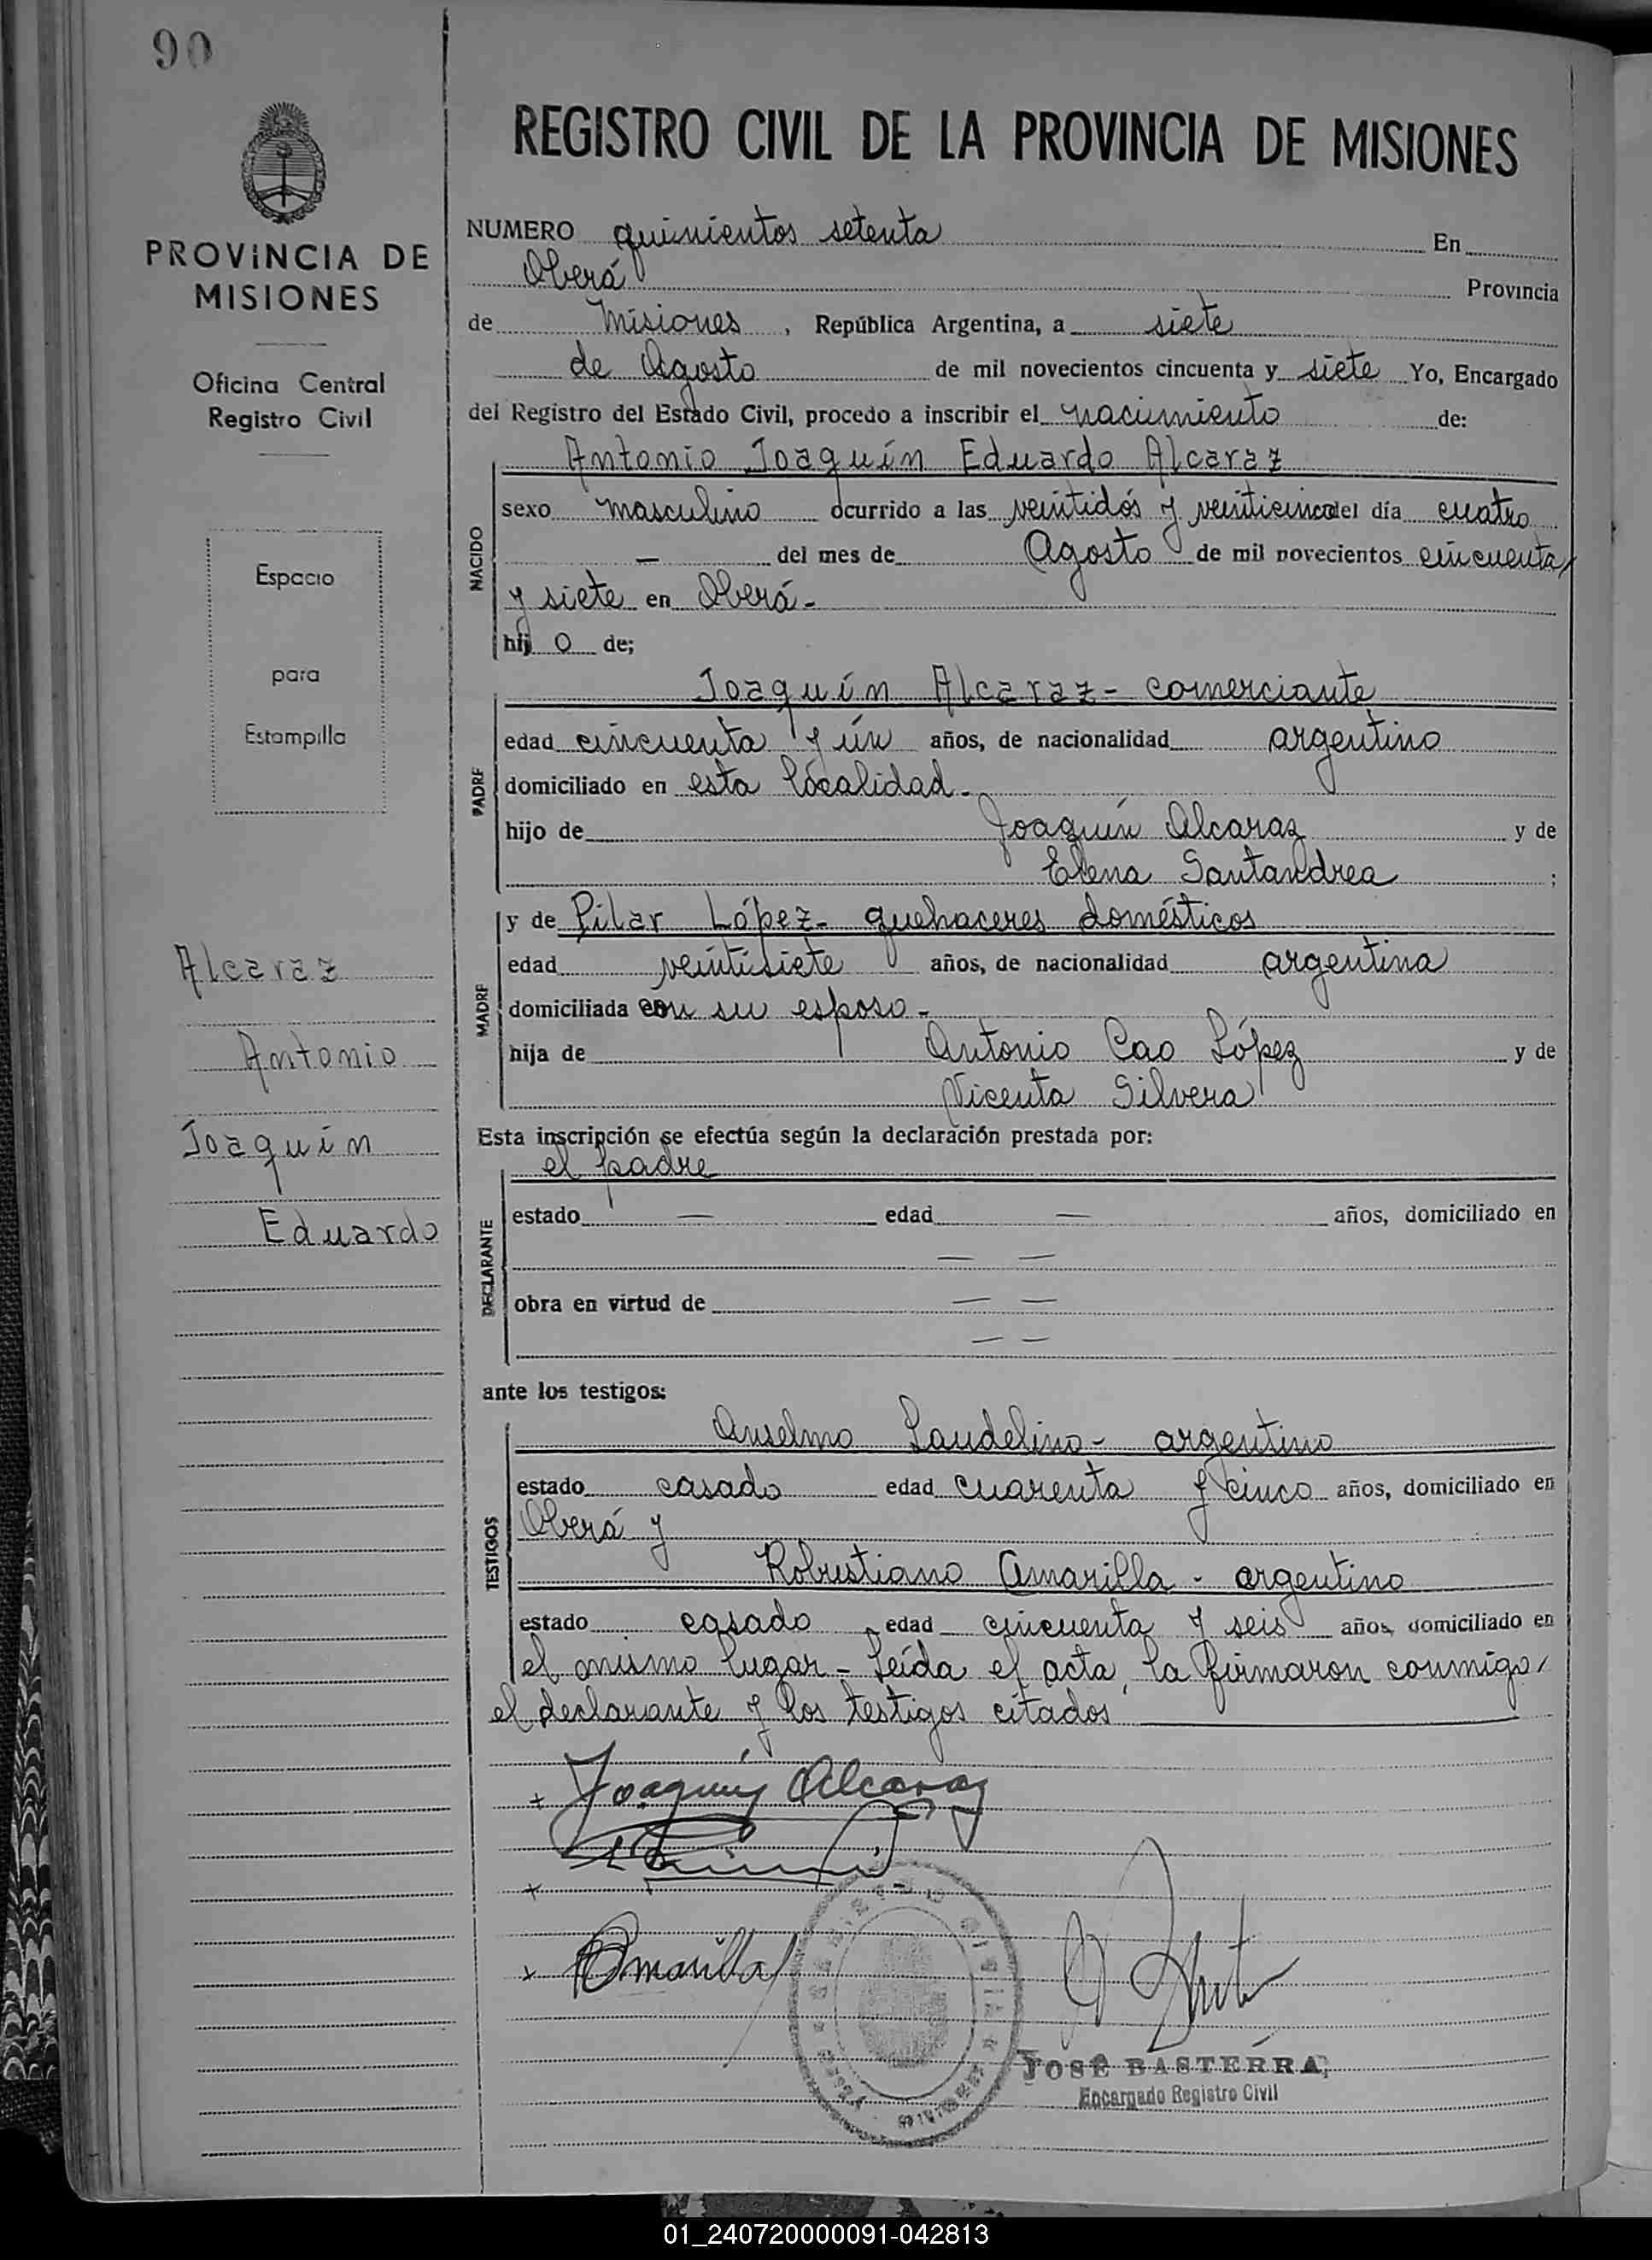 90
REGISTRO CIVIL DE LA PROVINCIA DE MISIONES
PROVINCIA DE
MISIONES
Oficina Central
Registro Civil
Espacio
para
Estampilla
Alcaraz
Antonio
Joaquín
Eduardo
NUMERO quinientos setenta En
Oberá Provincia
de Misiones, República Argentina, a siete
de Agosto de mil novecientos cincuenta y siete Yo, Encargado
del Registro del Estado Civil, procedo a inscribir el nacimiento de:
Antonio Joaquín Eduardo Alcaraz
NACIDO
sexo masculino ocurrido a las veintidós y veinticinco del día cuatro
— del mes de Agosto de mil novecientos cincuenta
y siete en Oberá-
hij o de;
Joaquín Alcaraz - comerciante
PADRE
edad cincuenta y ún años, de nacionalidad argentino
domiciliado en esta localidad-
hijo de Joaquín Alcaraz y de
Elena Santandrea ;
y de Pilar López- quehaceres domésticos
MADRE
edad veintisiete años, de nacionalidad argentina
domiciliada con su esposo-
hija de Antonio Cao López y de
Vicenta Silvera
Esta inscripción se efectúa según la declaración prestada por:
el padre
DECLARANTE
estado — edad — años, domiciliado en
— —
obra en virtud de — —
— —
ante los testigos:
TESTIGOS
Anselmo Laudelino- argentino
estado casado edad cuarenta y cinco años, domiciliado en
Oberá y
Robustiano Amarilla - argentino
estado casado edad cincuenta y seis años, domiciliado en
el mismo lugar- Leída el acta, la firmaron conmigo,
el declarante y los testigos citados
x Joaquín Alcaraz
x
x Amarilla
JOSÉ BASTERRA
Encargado Registro Civil
01_240720000091-042813